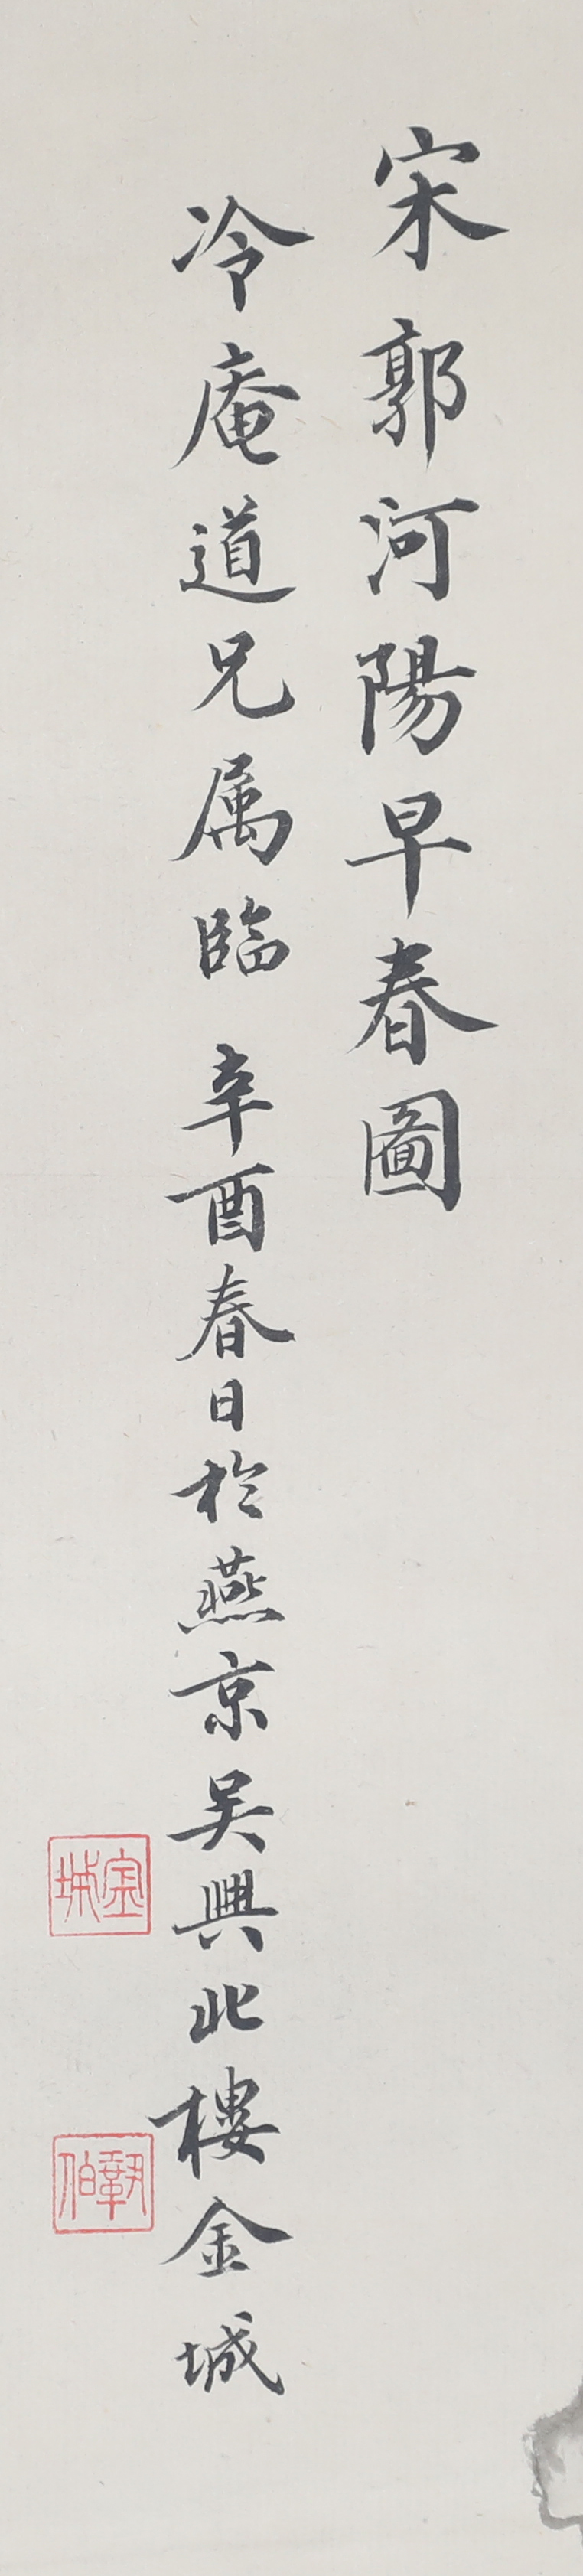 宋郭河陽早春圖
冷庵道兄属臨 辛酉春日於燕京吴興北樓金城
金城
鞏伯